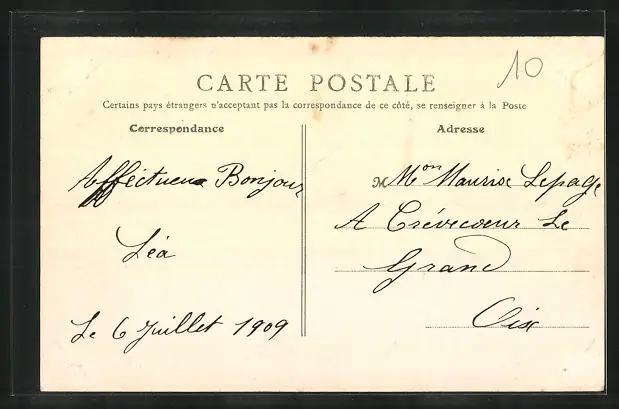 10
CARTE POSTALE
Certains pays étrangers n'acceptant pas la correspondance de ce côté, se renseigner à la Poste
Correspondance
Affectueux Bonjour
Léa
Le 6 Juillet 1909
Adresse
M Mon Maurice Lepage
A Crévecoeur Le
Grand
Oise